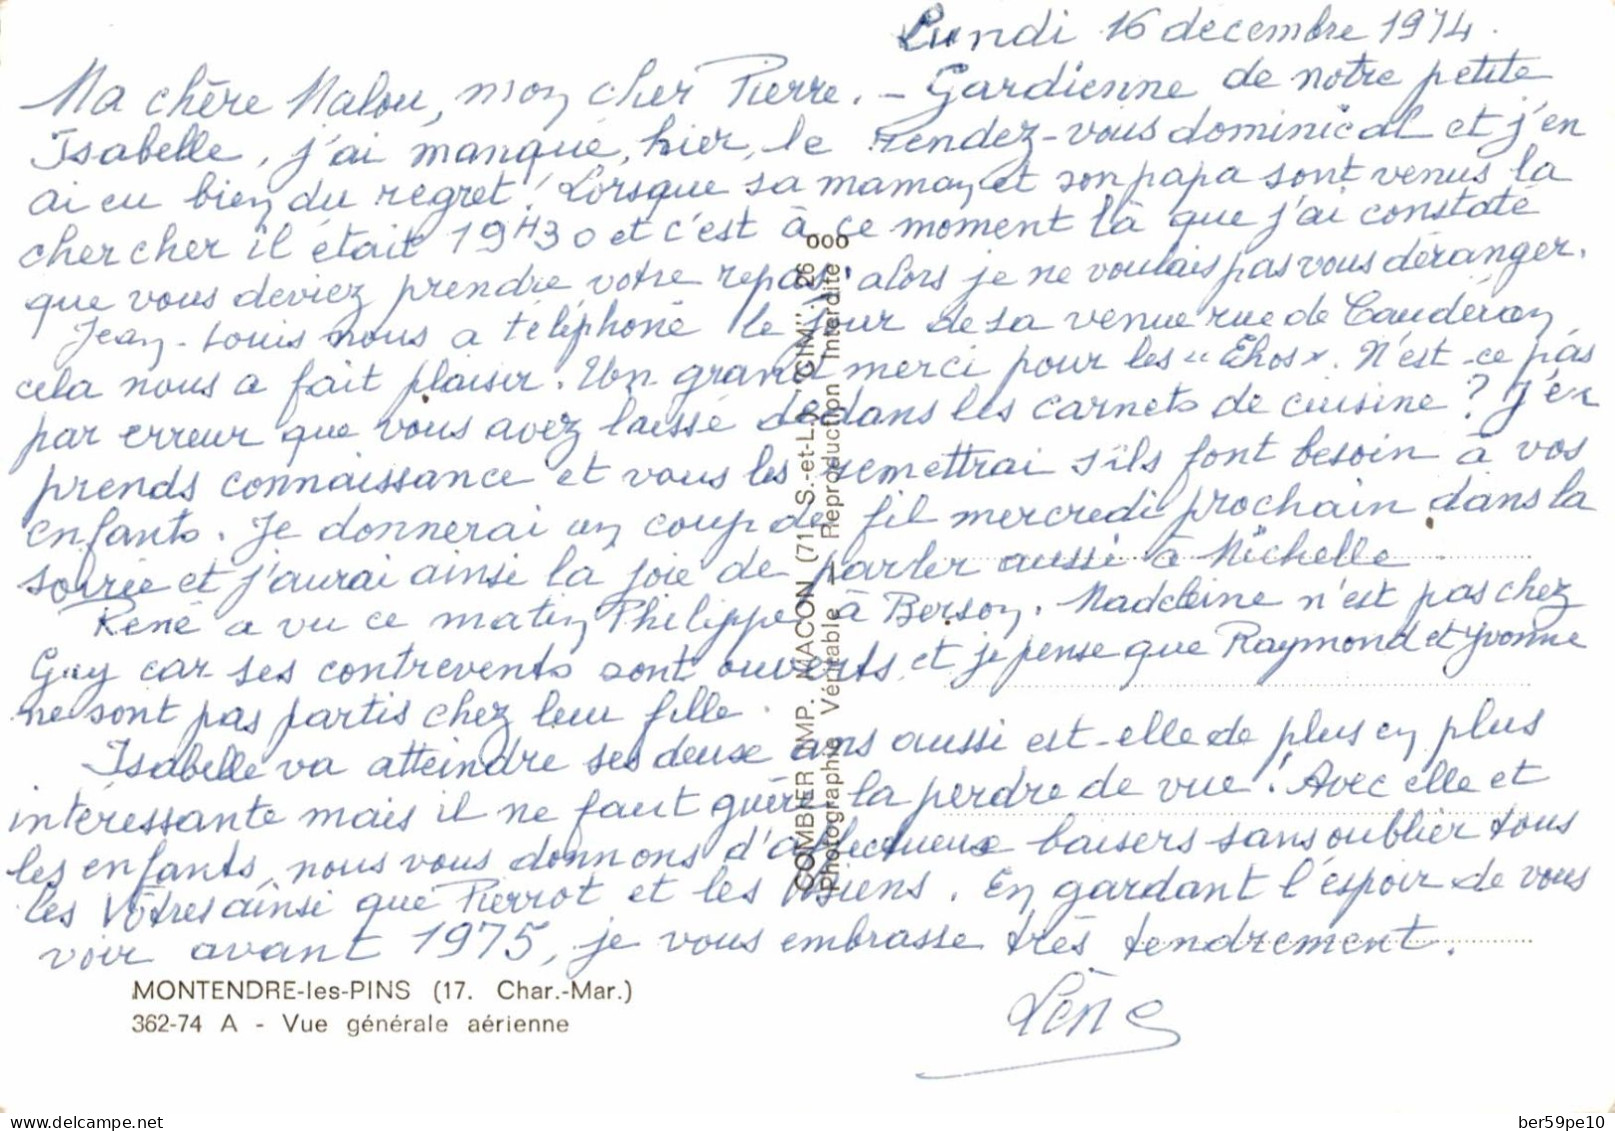 Lundi 16 décembre 1974.
Ma chère Malou, mon cher Pierre. – Gardienne de notre petite
Isabelle, j'ai manqué, hier, le rendez-vous dominical et j'en
ai eu bien du regret! Lorsque sa maman et son papa sont venus la
chercher il était 19H30 et c'est à ce moment là que j'ai constaté
que vous deviez prendre votre repas; alors je ne voulais pas vous déranger.
Jean-Louis nous a téléphoné le jour de sa venue rue de Caudéran,
cela nous a fait plaisir. Un grand merci pour les "Ehos". N'est-ce pas
par erreur que vous avez laissé de dans les carnets de cuisine? J'en
prends connaissance et vous les remettrai s'ils font besoin à vos
enfants. Je donnerai un coup de fil mercredi prochain dans la
soirée et j'aurai ainsi la joie de parler aussi à Michelle
René a vu ce matin Philippe à Berson. Madeleine n'est pas chez
Guy car ses contrevents sont ouverts et je pense que Raymond et Yvonne
ne sont pas partis chez leur fille.
Isabelle va atteindre ses deux ans aussi est-elle de plus en plus
intéressante mais il ne faut guère la perdre de vue! Avec elle et
les enfants, nous vous donnons d'affectueux baisers sans oublier tous
les Vôtres ainsi que Pierrot et les siens. En gardant l'espoir de vous
voir avant 1975, je vous embrasse très tendrement.
Lène
MONTENDRE-les-PINS (17. Char.-Mar.)
362-74 A - Vue générale aérienne
COMBIER IMP. MACON (71 S.-et-L.) "CIM" 26 000
Photographie Véritable — Reproduction Interdite
delcampe.net
ber59pe10